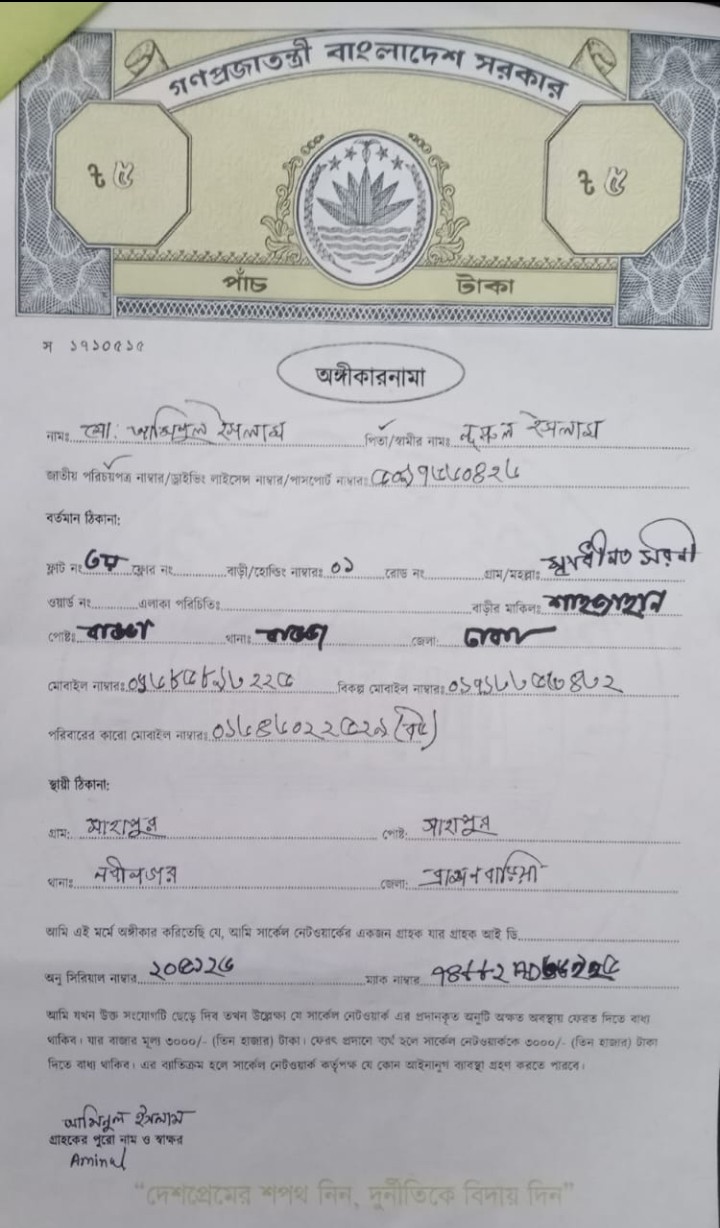 গণপ্রজাতন্ত্রী বাংলাদেশ সরকার
৳ ৫ ৳ ৫
পাঁচ টাকা
স ১৭১০৫১৫
অঙ্গীকারনামা
নামঃ মো: আমিনুল ইসলাম পিতা/স্বামীর নামঃ নুরুল ইসলাম
জাতীয় পরিচয়পত্র নাম্বার/ড্রাইভিং লাইসেন্স নাম্বার/পাসপোর্ট নাম্বারঃ
বর্তমান ঠিকানা:
ফ্লাট নং ৩য় ফ্লোর নং বাড়ী/হোল্ডিং নাম্বারঃ ০১ রোড নং গ্রাম/মহল্লাঃ সরনী
ওয়ার্ড নং এলাকা পরিচিতিঃ বাড়ীর মালিকঃ শাহজাহান
পোষ্টঃ বাড্ডা থানাঃ বাড্ডা জেলা: ঢাকা
মোবাইল নাম্বারঃ বিকল্প মোবাইল নাম্বারঃ
পরিবারের কারো মোবাইল নাম্বারঃ
স্থায়ী ঠিকানা:
গ্রাম: সাহাপুর পোষ্ট: সাহাপুর
থানাঃ নবীনগর জেলা: ব্রাহ্মনবাড়িয়া
আমি এই মর্মে অঙ্গীকার করিতেছি যে, আমি সার্কেল নেটওয়ার্কের একজন গ্রাহক যার গ্রাহক আই ডি
অনু সিরিয়াল নাম্বার ম্যাক নাম্বার
আমি যখন উক্ত সংযোগটি ছেড়ে দিব তখন উল্লেক্ষ্য যে সার্কেল নেটওয়ার্ক এর প্রদানকৃত অনুটি অক্ষত অবস্থায় ফেরত দিতে বাধ্য
থাকিব। যার বাজার মূল্য ৩০০০/- (তিন হাজার) টাকা। ফেরৎ প্রদানে ব্যর্থ হলে সার্কেল নেটওয়ার্ককে ৩০০০/- (তিন হাজার) টাকা
দিতে বাধ্য থাকিব। এর ব্যতিক্রম হলে সার্কেল নেটওয়ার্ক কর্তৃপক্ষ যে কোন আইনানুগ ব্যবস্থা গ্রহণ করতে পারবে।
আমিনুল ইসলাম
গ্রাহকের পুরো নাম ও স্বাক্ষর
Aminul
“দেশপ্রেমের শপথ নিন, দুর্নীতিকে বিদায় দিন”